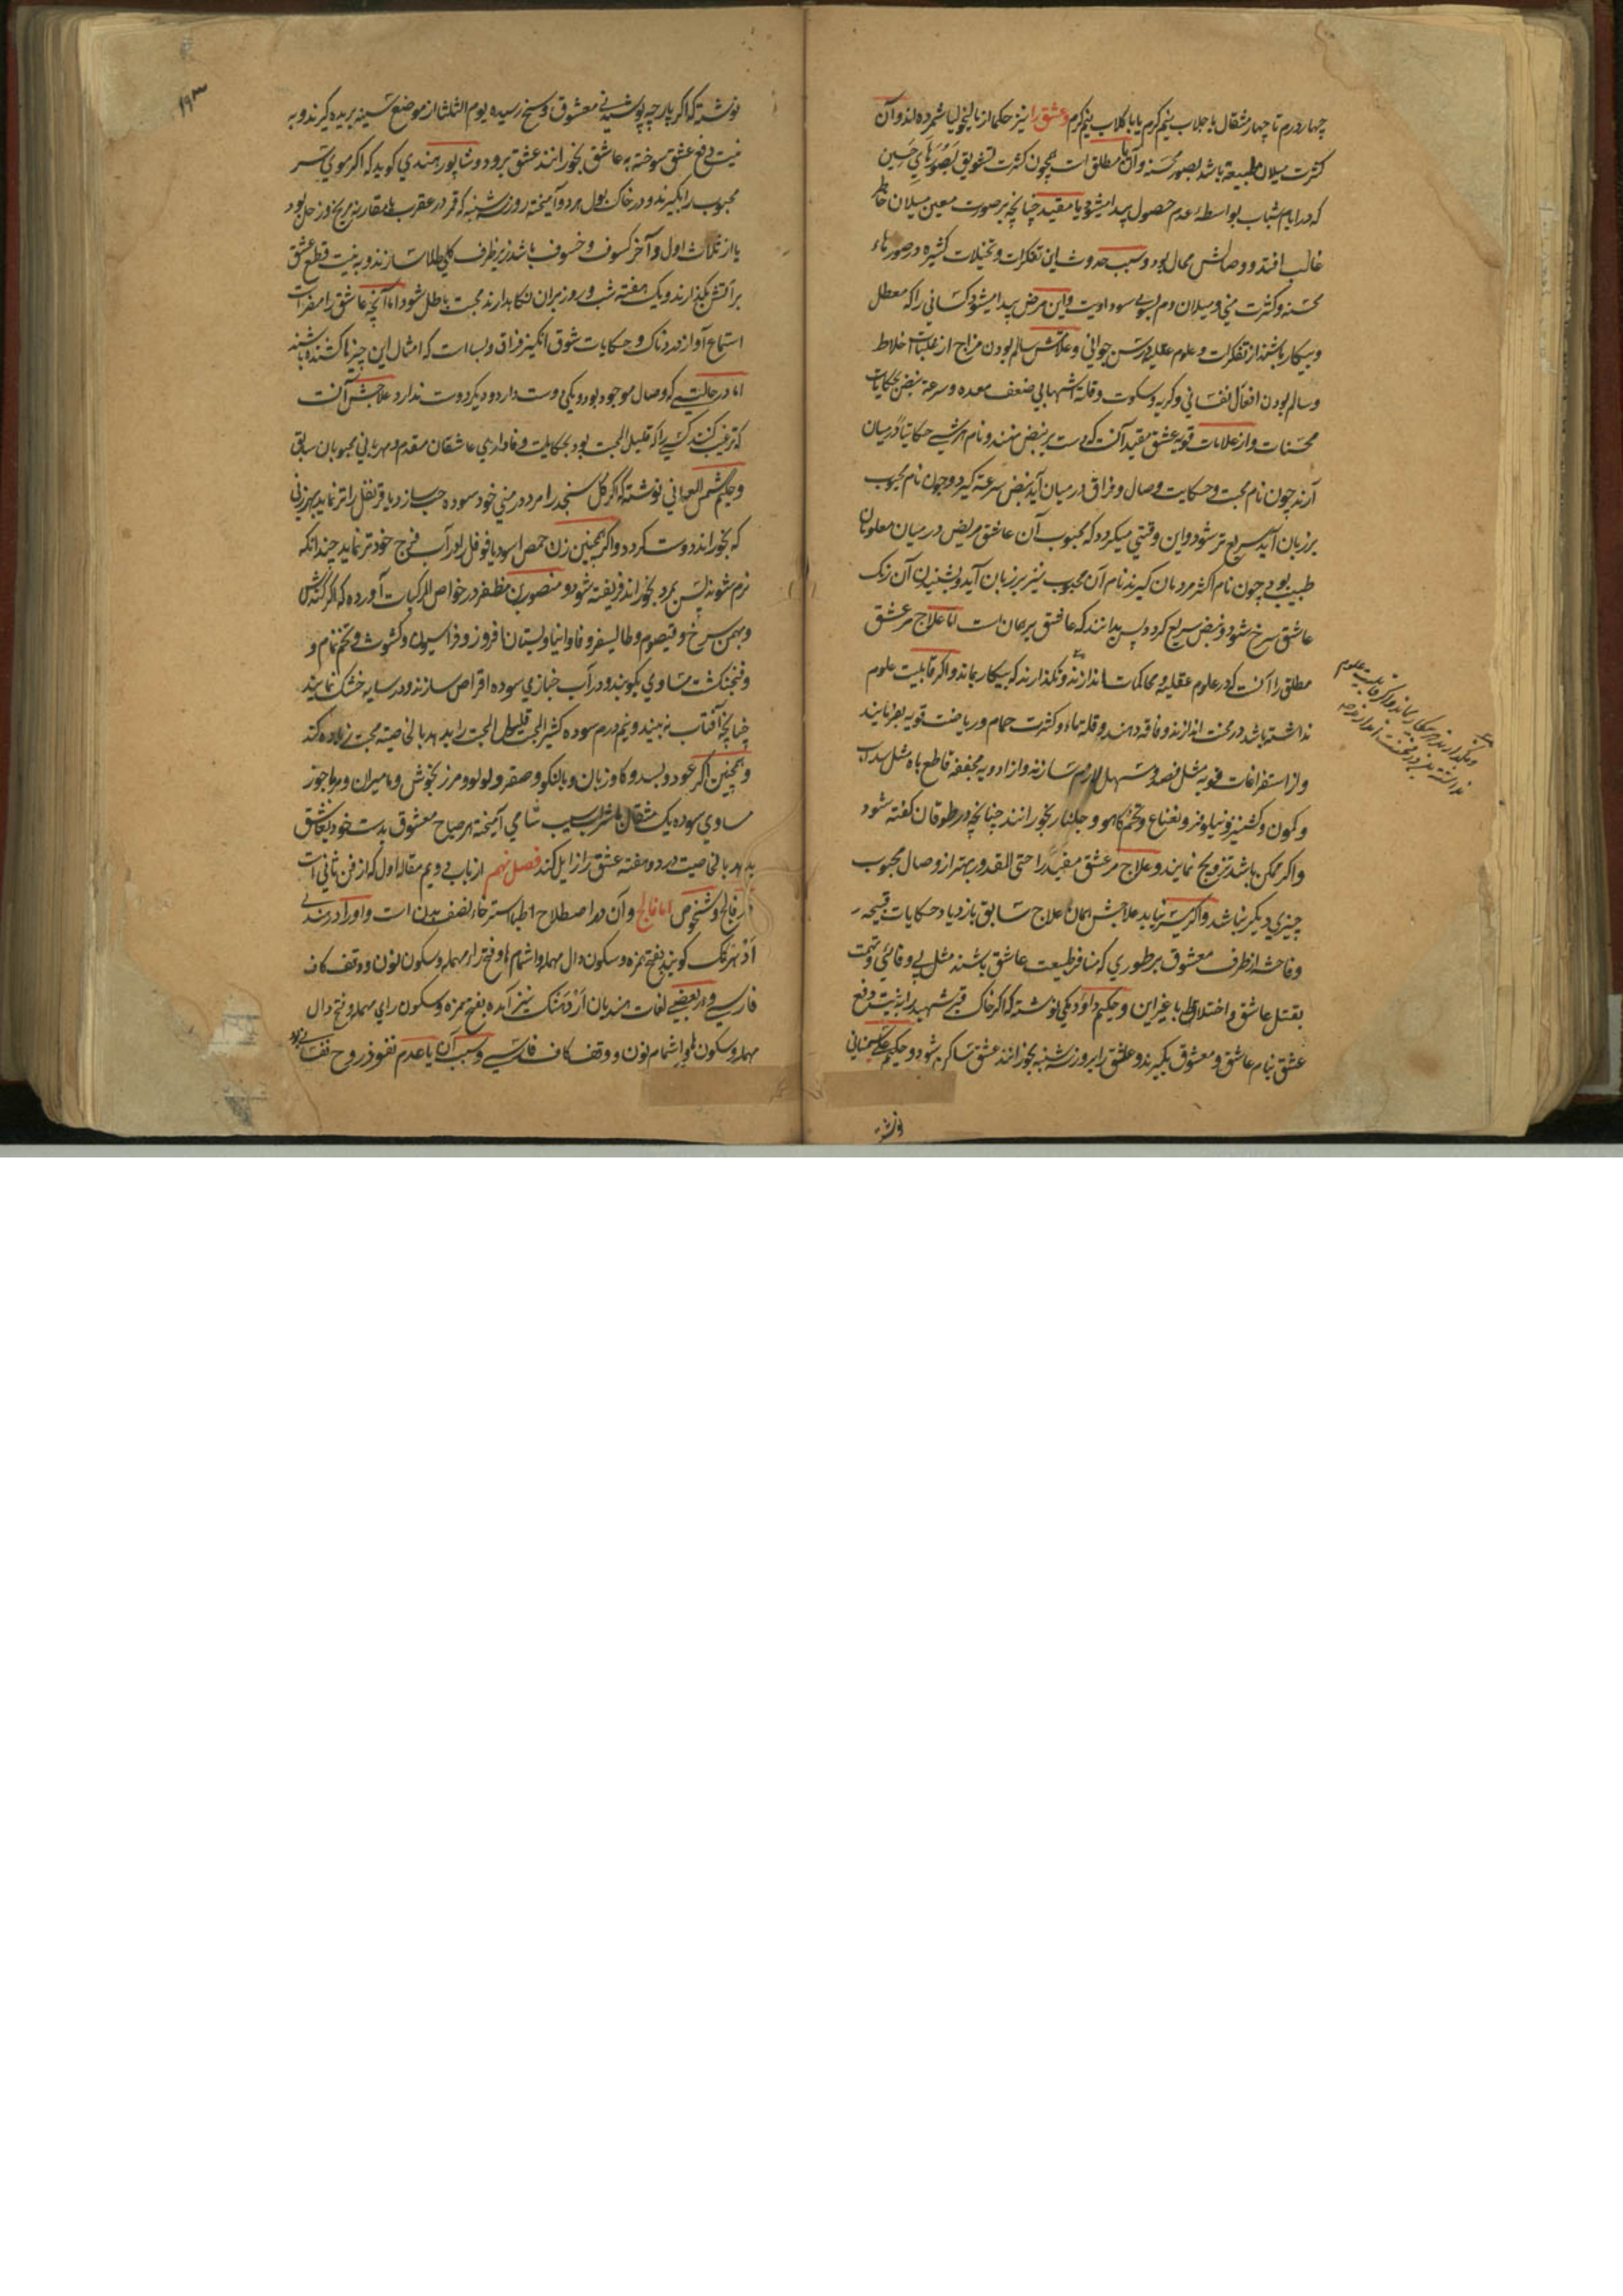 چهار درم تا چهار مثقال با جلاب نیم گرم یا با گلاب نیم گرم و عشق را نیز حکما از مالیخولیا شمرده اند و آن
کثرت میلان طبیعة باشد بصور محسنه و آن یا مطلق است همچون کثرت تشویق بصورتهای حسین
که در ایام شباب بواسطهٔ عدم حصول پیدا میشود یا مقید چنانچه بر صورت معین میلان خاطر
غالب افتد و وصالش محال بود و سبب حدوث این تفکرات و تخیلات کثیره در صورتهاء
محسنه و کثرت منی و میلان دم بسوی سوداویت و این مرض پیدا میشود کسانی را که معطل
و بیکار باشند از تفکرات و علوم عقلیه در سن جوانی و علامتش سالم بودن مزاج از غلبات اخلاط
و سالم بودن افعال نفسانی و گریه و سکوت و قلة اشتها بی ضعف معده و سرعة نبض بحکایات
محسنات و از علامات قویه عشق مقید آنست که دست بر نبض نهند و نام هر شی حکایتاً در میان
آرند چون نام محبت و حکایت وصال و فراق در میان آید نبض سرعة گیرد و چون نام محبوب
بر زبان آید سریع تر شود و این وقتی میگردد که محبوب آن عاشق مریض در میان معلومان
طبیب بود چون نام اکثر مردمان گیرند نام آن محبوب نیز بر زبان آید و بشنیدن آن رنگ
عاشق سرخ شود و نبض سریع گردد پس بدانند که عاشق بر همان است اما علاج مر عشق
مطلق را آنست که در علوم عقلیه و محاکمات اندازند و نگذارند که بیکار بماند و اگر قابلیت علوم
نداشته باشد در محنت اندازند و فاقه دهند و قلة ماء و کثرت حمام و ریاضت قویه بفرمایند
و از استفراغات قویه مثل فصد و مسهل لازم سازند و از ادویه مجففه قاطع باه مثل سداب
و کمون و کشنیز و نیلوفر و نعناع و تخم کاهو و جلنار بخورانند چنانچه در طوقان گفته شود
و اگر ممکن باشد تزویج نمایند و علاج مر عشق مقید را حتی المقدور بهتر از وصال محبوب
چیزی دیگر نباشد و اگر میسر نیاید علاجش همان علاج سابق بازدیاد حکایات قبیحه
و فاحشه از طرف معشوق بر طوری که منافر طبیعت عاشق باشند مثل بی وفائی و تهمت
بقتل عاشق و اختلاط با غیر این و حکیم داؤد یکی نوشته که اگر خاک قبر شهید را بنیت دفع
عشق بنام عاشق و معشوق بگیرند و عاشق را بروز شنبه بخورانند عشق ساکن شود و حکیم علی گیلانی
نوشته
نوشته که اگر پارچه پوشیدنی معشوق وسخ رسیده یوم الثلثا از موضع سینه بریده گیرند و به
نیت دفع عشق سوخته به عاشق بخورانند عشق برود و شاپور هندی گوید که اگر موی سر
محبوب را بگیرند و در خاک بول هر دو آمیخته روز شنبه که قمر در عقرب با مقارنه مریخ و زحل بود
یا از ثلاث اول و آخر کسوف و خسوف باشد زیر ظرف گلی طلا سازند و به نیت قطع عشق
بر آتش بگذارند و یک هفته شب و روز بران نگاهدارند محبت باطل شود اما آنچه عاشق را مضر است
استماع آواز دردناک و حکایات شوق انگیز و فراق و بسا است که امثال این چیزها کشنده باشند
اما در حالتی که وصال موجود بود و یکی دوست دارد و دیگر دوست ندارد علاجش آنست
که ترغیب کنند کسی را که قلیل المحبت بود بحکایت وفاداری عاشقان مقدم و مهربانی محبوبان سابق
و حکیم شمس العمانی نوشته که اگر گل سنجد را مرد در منی خود سوده حب سازد یا قرنفل را تر نماید بهر زنی
که بخوراند دوست گردد و اگر همچنین زن حمص اسود یا فوفل را در آب فرج خود تر نماید چندانکه
نرم شوند پس بمرد بخوراند فریفته شود و منصور بن مظفر در خواص المرکبات آورده که اگر کندش
و بهمن سرخ و قیصوم و طالیسفر و فاوانیا و بستان افروز و فراسیون و کشوث و تخم نمام و
و فنجنکشت مساوی بکوبند و در آب خبازی سوده اقراص سازند و در سایه خشک نمایند
چنانچه آفتاب نه بیند و نیم درم سوده کثیر المحبت قلیل المحبت را بدهد بالخاصیة محبت زیاده کند
و همچنین اگر عود و بسد و گاوزبان و بالنگو و صقر و لولو و مرزنجوش و مامیران و ماجوز
مساوی سوده یک مثقال با شراب سیب شامی آمیخته هر صباح معشوق بدست خود بعاشق
بدهد بالخاصیت در دو هفته عشق را زایل کند فصل نهم از باب دویم مقاله اول که از فن ثانی است
در فالج و شخوص اما فالج و آن در اصطلاح اطبا استرخاء نصف بدن است و او را در هندی
اَدْهرنگ گویند بفتح همزه و سکون دال مهمله و اشمام ها و فتح راء مهمله و سکون نون و وقف کاف
فارسی و در بعضی لغات هندیان اَرْدَهنگ نیز آمده بفتح همزه و سکون رای مهمله و فتح دال
مهمله و سکون ها و اشمام نون و وقف کاف فارسی و سبب آن یا عدم نفوذ روح نفسانی بود
و نگذارند که بیکار بماند و اگر قابلیت علوم
نداشته باشد در محنت اندازند
۱۹۳